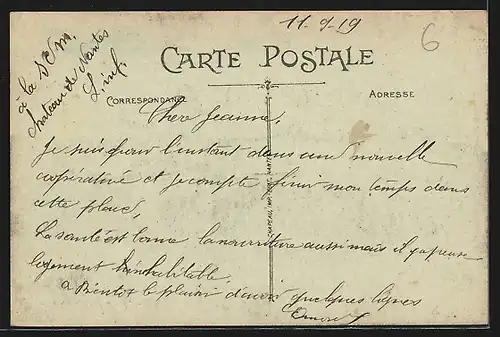 11-9-19
6
à la S.E.M.
Chateau de Nantes
L. inf.
CARTE POSTALE
CORRESPONDANCE
ADRESSE
Chere Jeanne,
Je suis pour l'instant dans une nouvelle
coopérative et je compte finir mon temps dans
cette place,
La santé est bonne la nourriture aussi mais il y a que
logement inhabitable
à Bientot le plaisir d'avoir quelques lignes